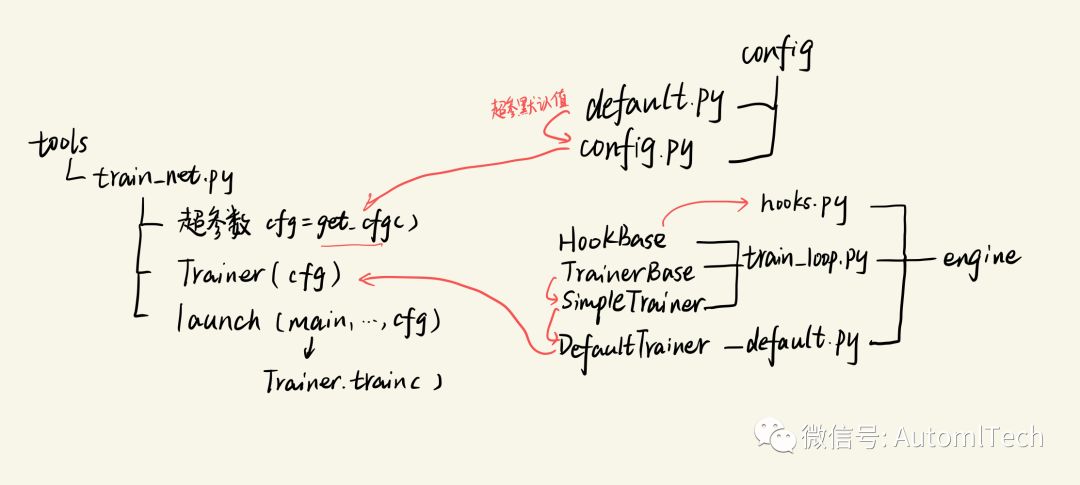 tools
train_net.py
超参数 cfg=get_cfg()
Trainer(cfg)
launch (main,…,cfg)
Trainer.train()
config
超参默认值
default.py
config.py
hooks.py
HookBase
TrainerBase
SimpleTrainer
train_loop.py
engine
DefaultTrainer
default.py
微信号: AutomlTech